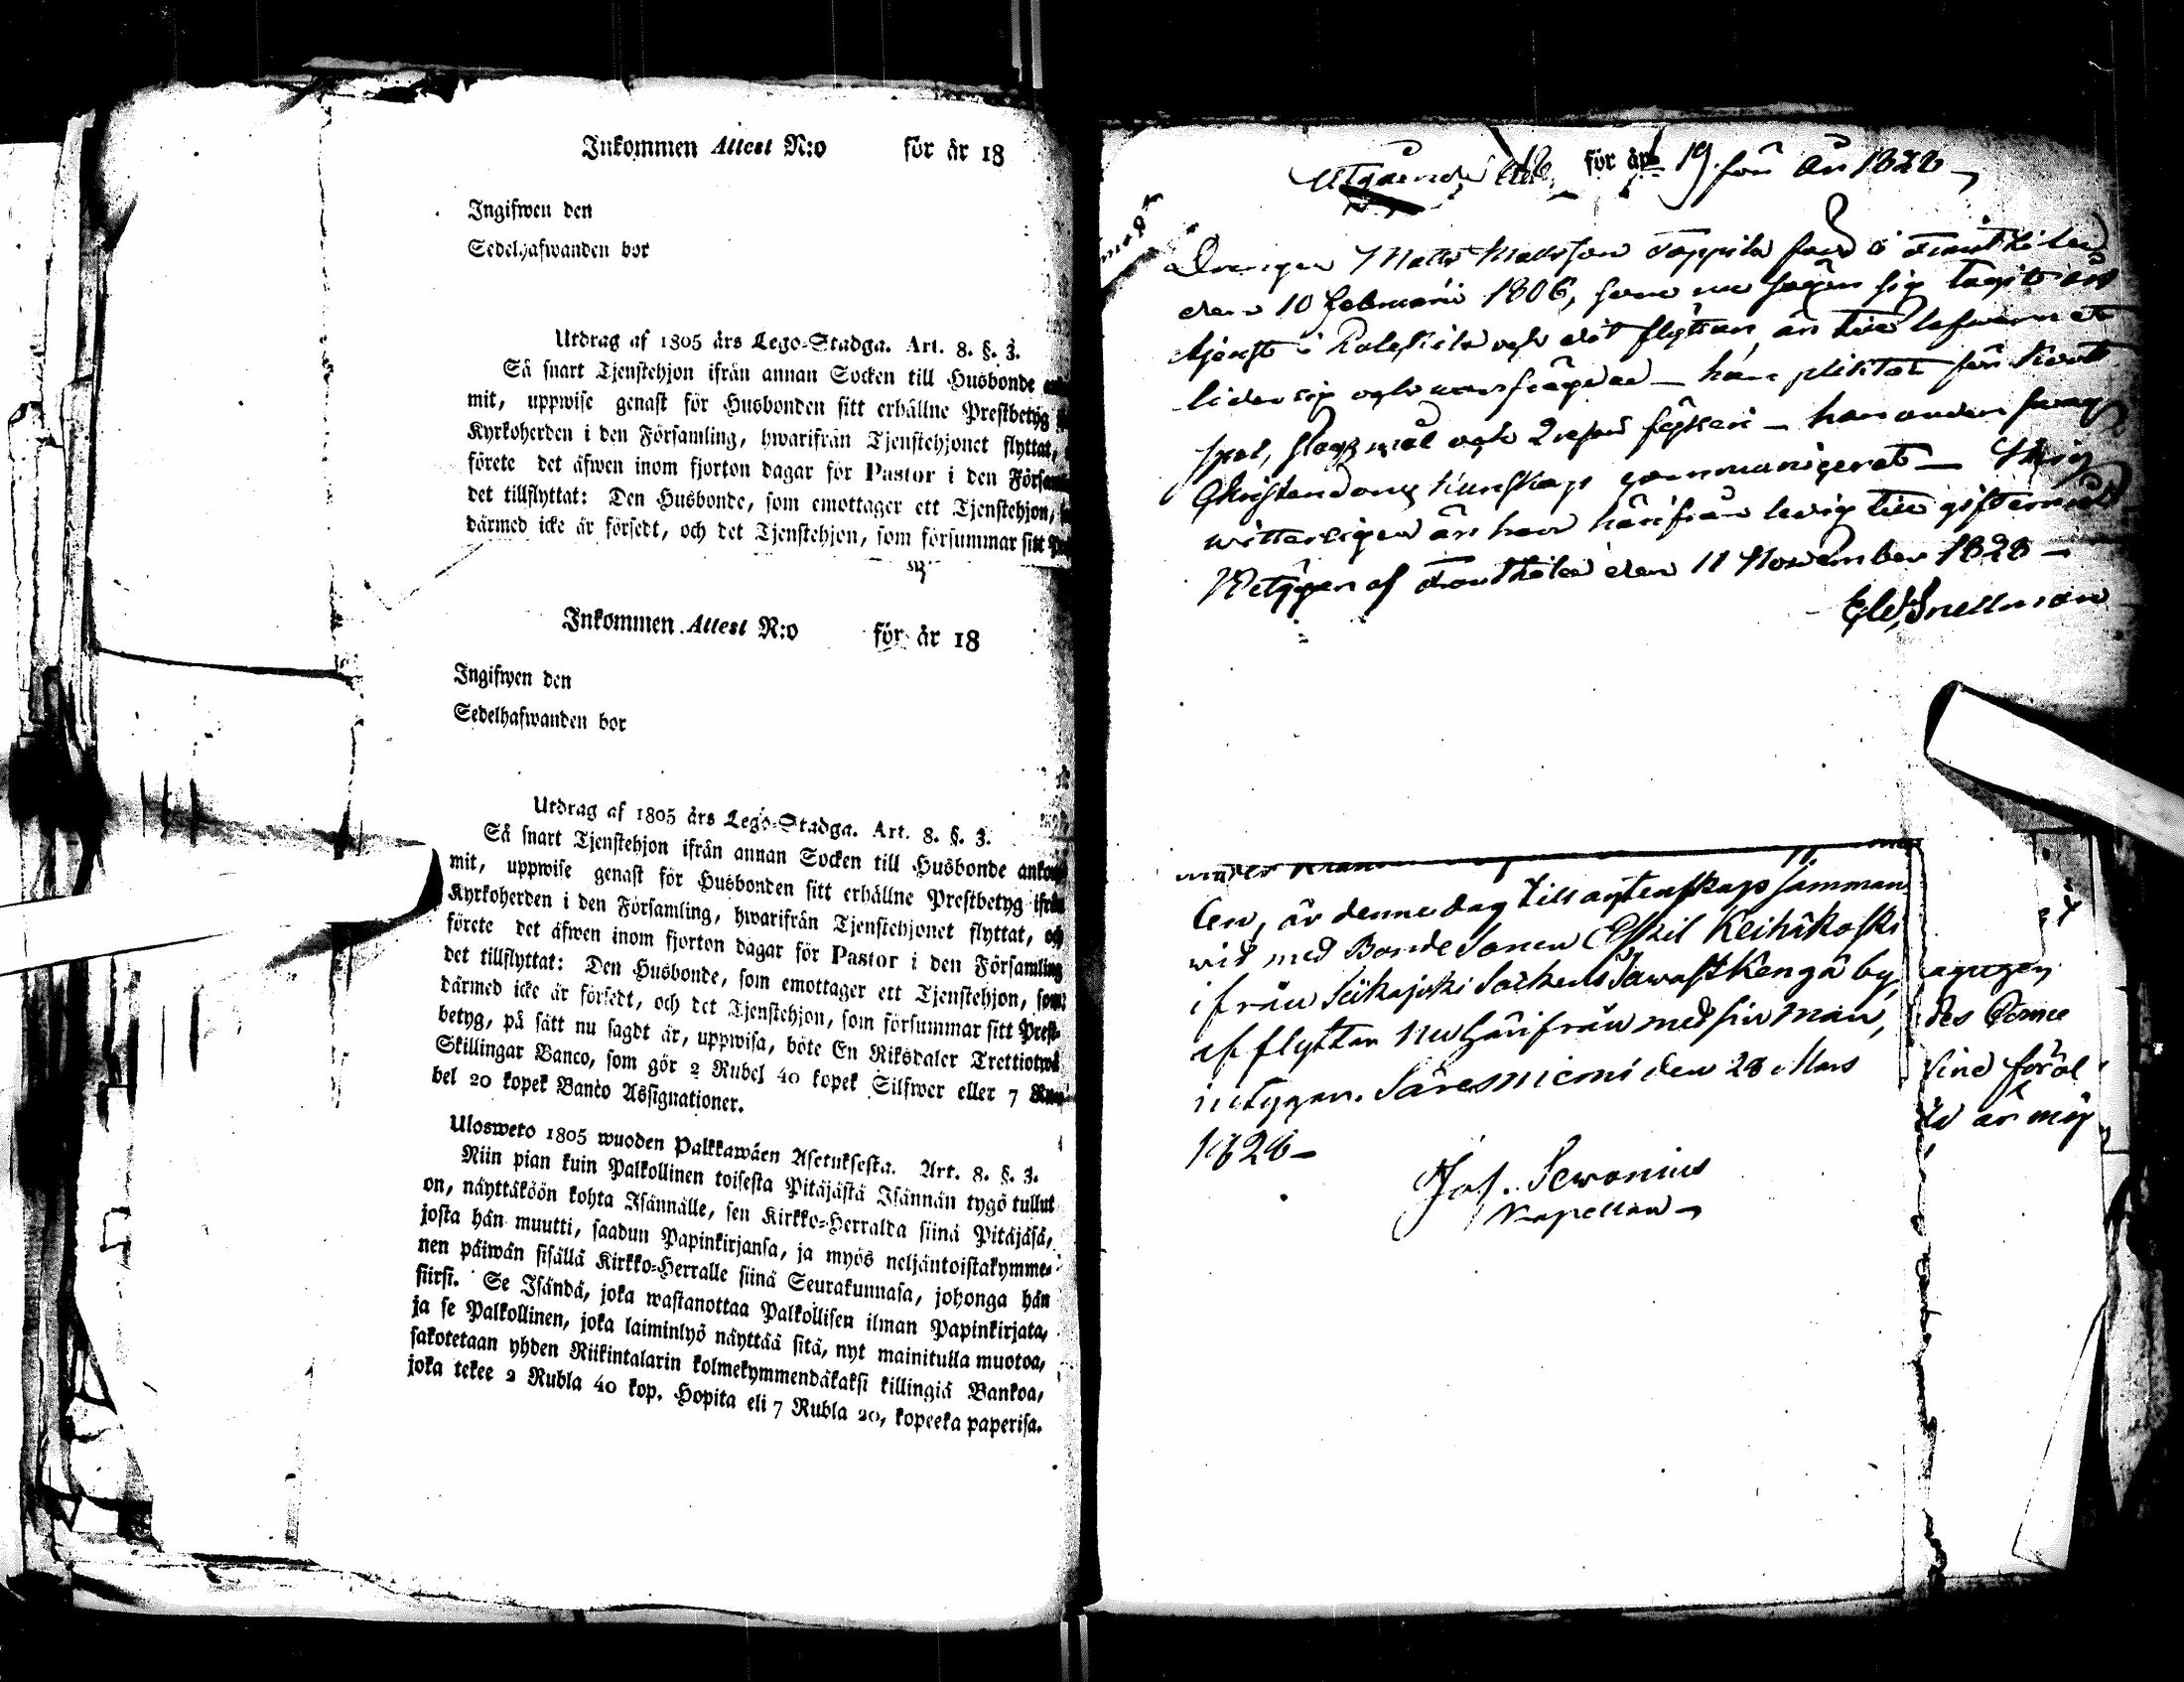 Inkommen Attest N:o för år 18
Ingifwen den
Sedelhafwanden bor
Utdrag af 1805 års Lego-Stadga. Art. 8. §. 3.
Så snart Tjenstehjon ifrån annan Socken till Husbonde
mit, uppwise genast för Husbonden sitt erhållne Prestbetyg
Kyrkoherden i den Församling, hwarifrån Tjenstehjonet flyttat,
förete det äfwen inom fjorton dagar för Pastor i den Försam
det tillflyttat: Den Husbonde, som emottager ett Tjenstehjon,
därmed icke är försedt, och det Tjenstehjon, som försummar sitt
Inkommen Attest N:o för år 18
Ingifwen den
Sedelhafwanden bor
Utdrag af 1805 års Lego-Stadga. Art. 8. §. 3.
Så snart Tjenstehjon ifrån annan Socken till Husbonde ankom
mit, uppwise genast för Husbonden sitt erhållne Prestbetyg ifrån
Kyrkoherden i den Församling, hwarifrån Tjenstehjonet flyttat, och
förete det äfwen inom fjorton dagar för Pastor i den Församling
det tillflyttat: Den Husbonde, som emottager ett Tjenstehjon, som
därmed icke är försedt, och det Tjenstehjon, som försummar sitt Prest-
betyg, på sätt nu sagdt är, uppwisa, böte En Riksdaler Trettiotwå
Skillingar Banco, som gör 2 Rubel 40 kopek Silfwer eller 7 Ru-
bel 20 kopek Banco Assignationer.
Ulosweto 1805 wuoden Palkkawäen Asetuksesta. Art. 8. §. 3.
Niin pian kuin Palkollinen toisesta Pitäjästä Isännän tygö tullut
on, näyttäköön kohta Isännälle, sen Kirkko-Herralda siinä Pitäjäsä,
josta hän muutti, saadun Papinkirjansa, ja myös neljäntoistakymme-
nen päiwän sisällä Kirkko-Herralle siinä Seurakunnasa, johonga hän
siirsi. Se Isändä, joka wastanottaa Palkollisen ilman Papinkirjata,
ja se Palkollinen, joka laiminlyö näyttää sitä, nyt mainitulla muotoa,
sakotetaan yhden Riikintalarin kolmekymmendäkaksi killingiä Bankoa,
joka tekee 2 Rubla 40 kop. Hopita eli 7 Rubla 20, kopeeka paperisa.
Utgående för år 19 för år 1828
Drengen Matts Mattsson Toppila född i Frantsila
den 10 Februarii 1806, som nu säger sig tagit års
tjenst i och dit flyttar, är till lefwernet
lidersig och wanfrägdad – har pliktat för Kort
spel, Slagsmål och 2 resor fylleri – har under swag
Christendoms Kunskap communicerat – Mig
witterligen är han härifrån ledig till giftermål
Betygar af Frantsila den 11 November 1828 –
Snellman
len, är denne dag till agtenskaps samman
wid med Bonde Sonen Eskil Keihäkoski
ifrån Siikajoki Sockens Sawastkengä by,
af flyttar nu härifrån med sin man,
intygar. Säresniemi den 28 Mars
1828 –
Jos. Sewonius
Kapellan
des
sind föräl
är mig